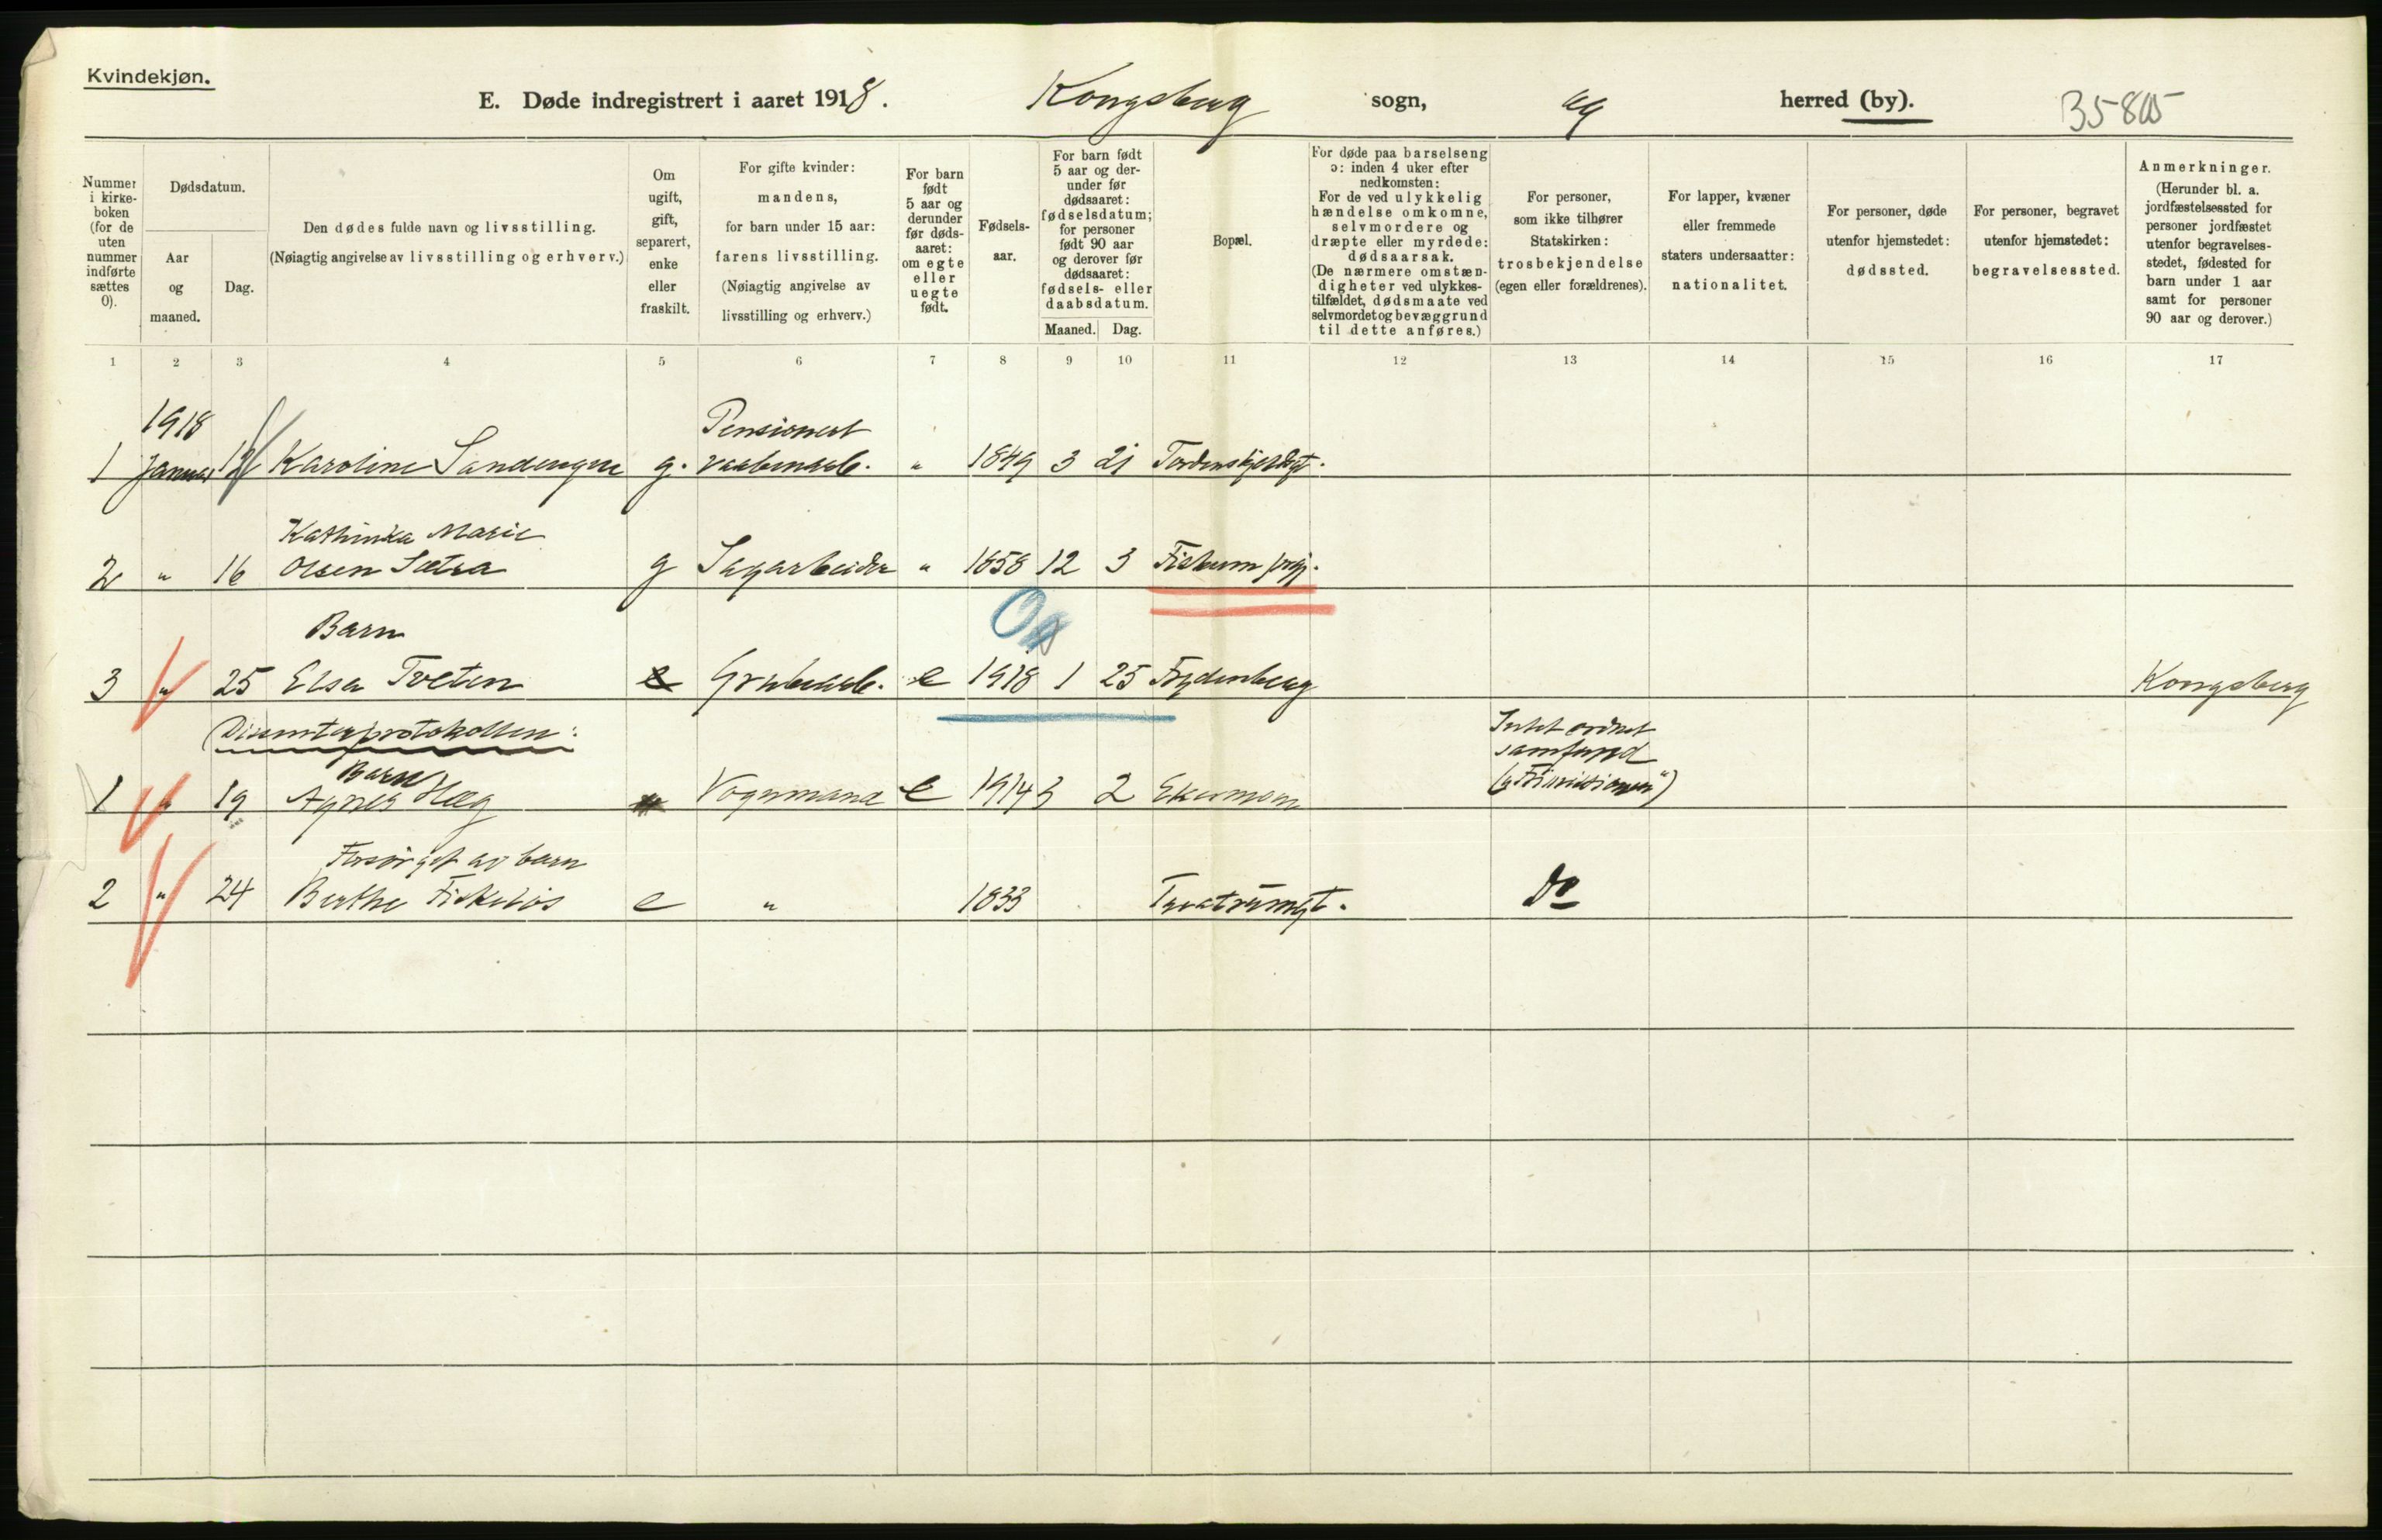 Kvindekjøn.
E. Døde indregistrert i aaret 1918. Kongsberg sogn, herred (by).
Nummer i kirke-boken (for de uten nummer indførte sættes 0).
Dødsdatum.
Aar og maaned.
Dag.
Den dødes fulde navn og livsstilling.
(Nøiagtig angivelse av livsstilling og erhverv.)
Om ugift, gift, separert, enke eller fraskilt.
For gifte kvinder: mandens, for barn under 15 aar: farens livsstilling.
(Nøiagtig angivelse av livsstilling og erhverv.)
For barn født 5 aar og derunder før døds-aaret: om egte eller uegte født.
Fødsels-aar.
For barn født 5 aar og der-under før dødsaaret: fødselsdatum; for personer født 90 aar og derover før dødsaaret: fødsels- eller daabsdatum.
Maaned. Dag.
Bopæl.
For døde paa barselseng ɔ: inden 4 uker efter nedkomsten:
For de ved ulykkelig hændelse omkomne, selvmordere og dræpte eller myrdede: dødsaarsak.
(De nærmere omstæn-digheter ved ulykkes-tilfældet, dødsmaate ved selvmordet og bevæggrund til dette anføres.)
For personer, som ikke tilhører Statskirken: trosbekjendelse (egen eller forældrenes).
For lapper, kvæner eller fremmede staters undersaatter: nationalitet.
For personer, døde utenfor hjemstedet: dødssted.
For personer, begravet utenfor hjemstedet: begravelsessted.
Anmerkninger.
(Herunder bl. a. jordfæstelsessted for personer jordfæstet utenfor begravelses-stedet, fødested for barn under 1 aar samt for personer 90 aar og derover.)
1 2 3 4 5 6 7 8 9 10 11 12 13 14 15 16 17
1918 Pensionert
1 Januar 12 Karoline Sandengen g. vaabenarb. " 1849 3 21 Tordenskjoldsgt.
Kathinka Marie
2 " 16 Olsen Sætra g Sagarbeider " 1858 12 3 Fiskum
Barn
3 " 25 Elsa Tveten Grubearb. e 1918 1 25 Frydenberg Kongsberg
Dissenterprotokollen: Intet ordnet
Barn samfund
1 " 19 Agnes Hæg Vognmand e 1914 3 2 Ekermoen ("Frimissionen")
Forsørget av barn
2 " 24 Berthe Fiskeløs e " 1833 do